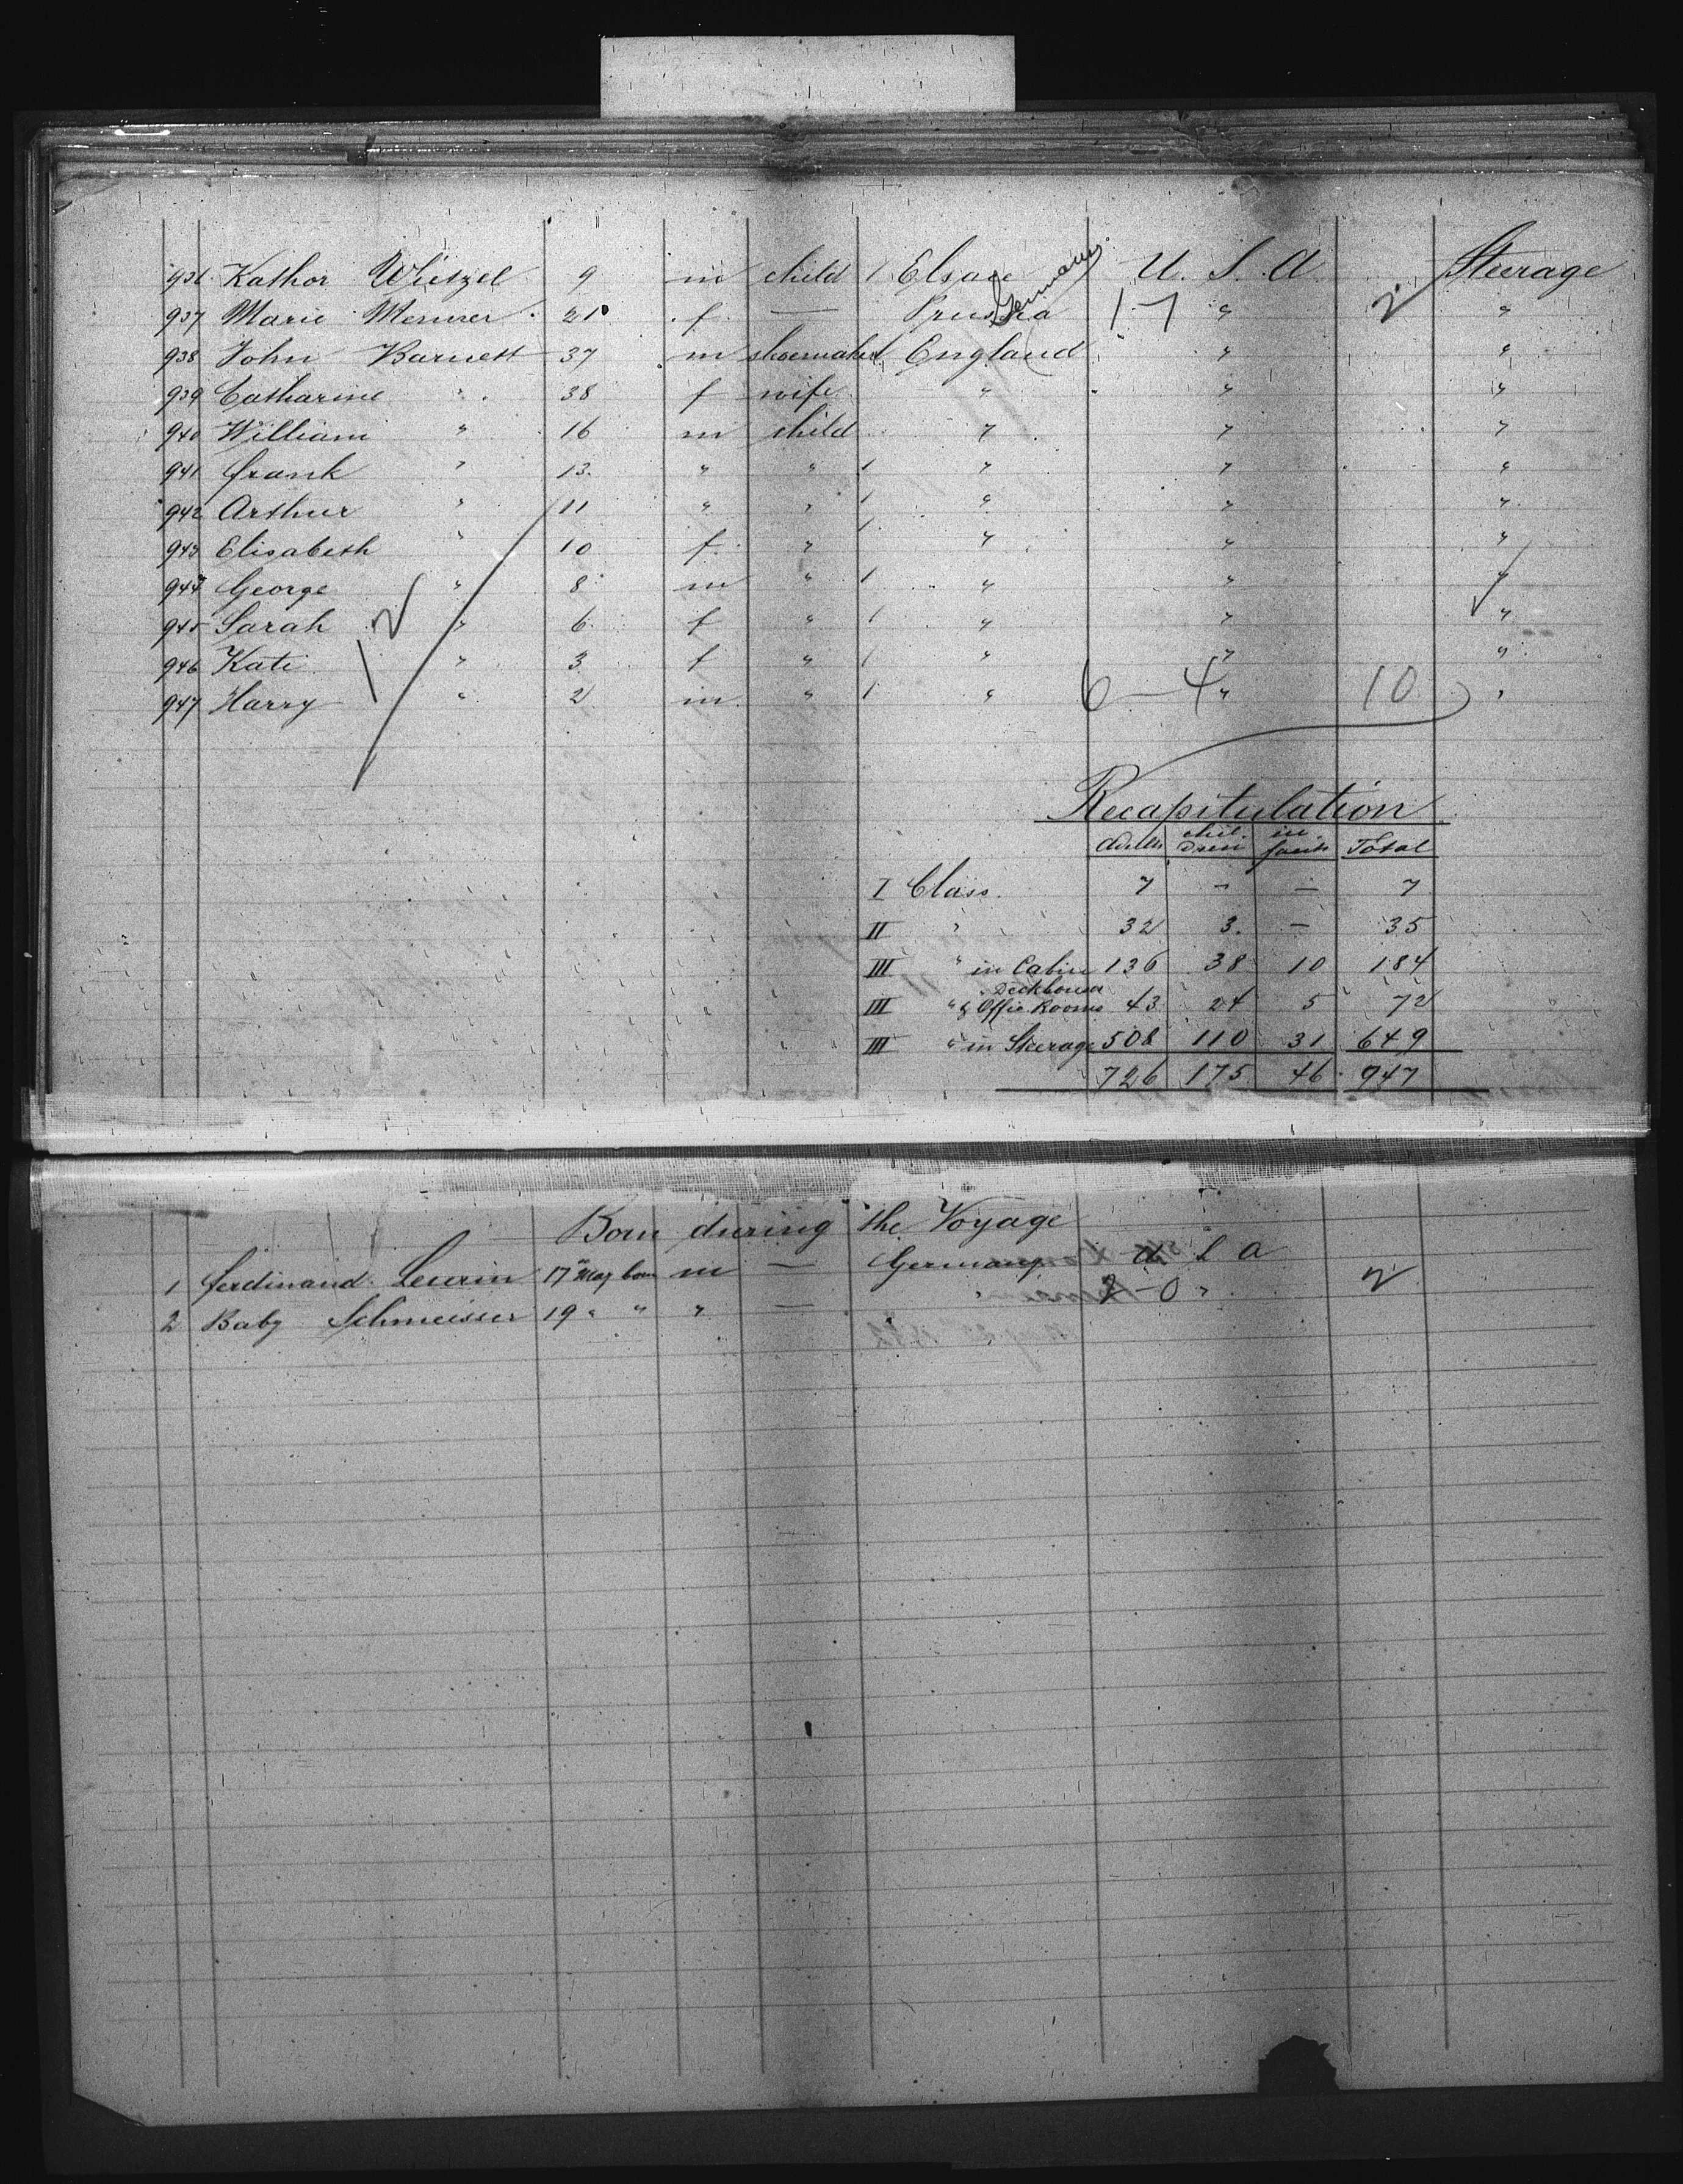 936 Kathor Wietzel 9 m child 1 Elsace Germany U. S. A Steerage
937 Marie 21 f — Prussia 1-1 " 2 "
938 John Barnett 37 m shoemaker England " "
939 Catharine " 38 f wife " " "
940 William " 16 m child " " "
941 Frank " 13 " " 1 " " "
942 Arthur " 11 " " 1 " " "
943 Elisabeth " 10 f " 1 " " "
944 George " 8 m " 1 " " "
945 Sarah " 6 f " 1 " " "
946 Kati " 3 f " 1 " " "
947 Harry " 2 m " 1 " 6-4 " 10 "
12
Recapitulation
Adults chil-dren in-fants Total
I Class 7 – – 7
II " 32 3 – 35
III " in Cabin 136 38 10 184
III " Deckhouse & Offic Rooms 43 24 5 72
III " in Steerage 508 110 31 649
726 175 46 947
Born during the Voyage
1 Ferdinand 17" May born m — Germany U S A
2-0 2
2 Baby Schmeisser 19 " " " — " "